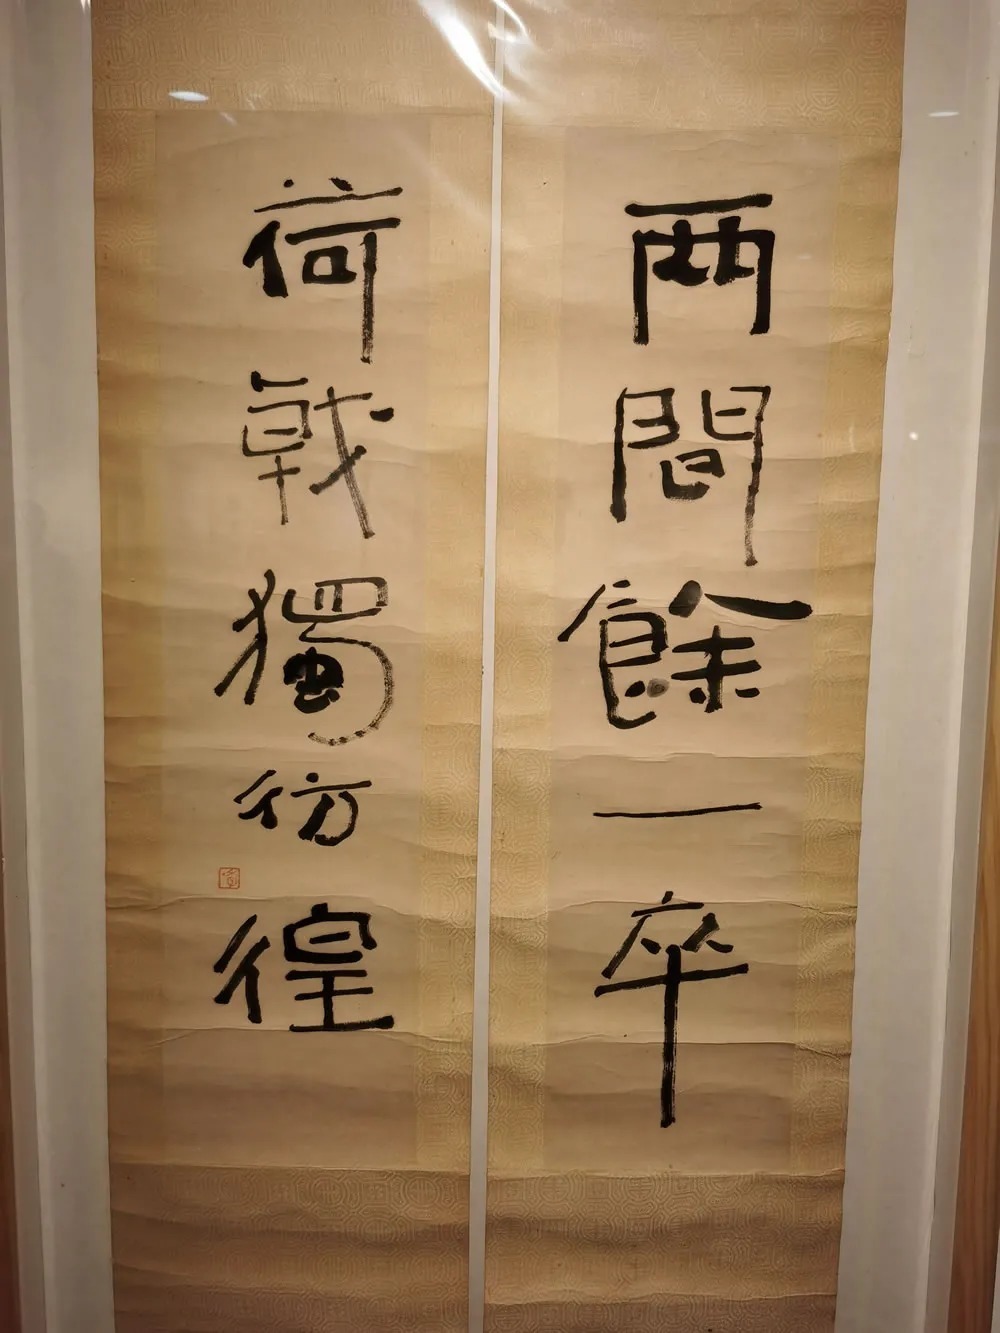 兩間餘一卒
荷戟獨彷徨